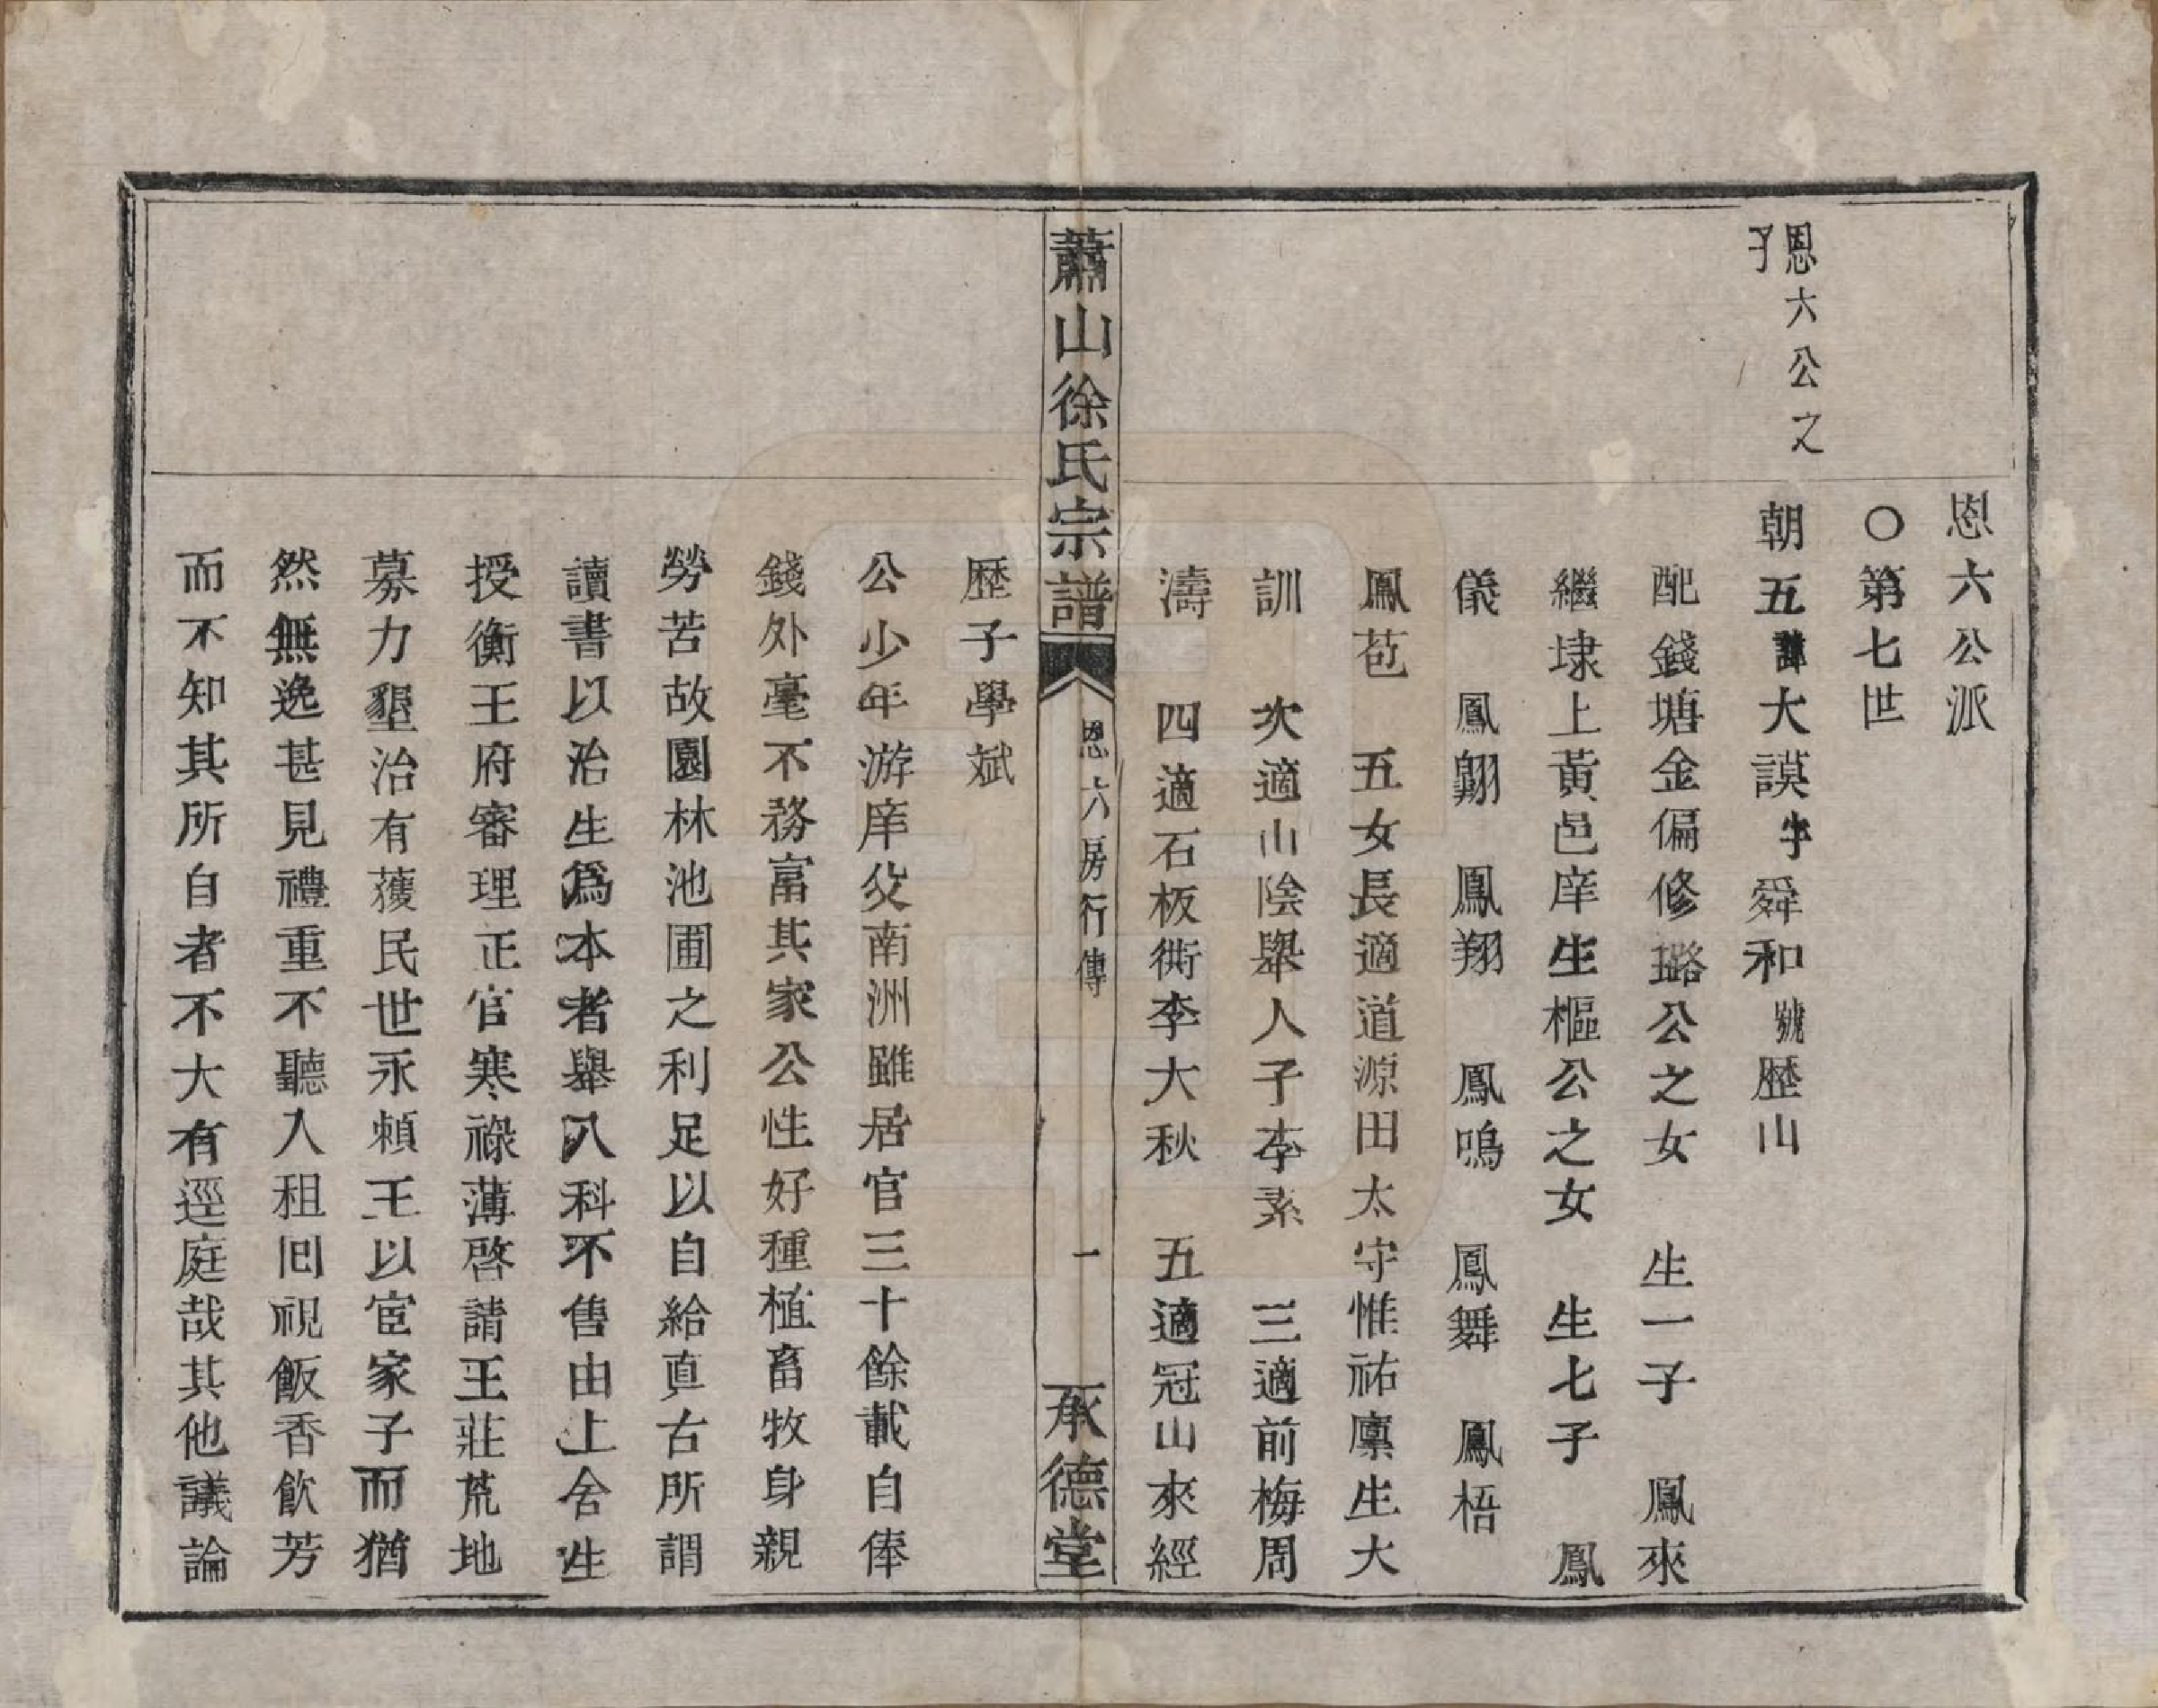 恩六公派
○第七世
恩六公之
子
朝五諱大謨字舜和號歷山
配錢塘金偏修璐公之女 生一子 鳳來
繼埭上黃邑庠生樞公之女 生七子 鳳
儀 鳳翺 鳳翔 鳳鳴 鳳舞 鳳梧
鳳苞 五女長適道源田太守惟祐廩生大
訓 次適山陰舉人子李素 三適前梅周
濤 四適石板衖李大秋 五適冠山來經
蕭山徐氏宗譜 恩六房行傳 一 承德堂
歷子學斌
公少年游庠父南洲雖居官三十餘載自俸
錢外毫不務富其家公性好種植畜牧身親
勞苦故園林池圃之利足以自給直古所謂
讀書以治生爲本者舉八科不售由上舍生
授衡王府審理正官寒祿薄啓請王莊荒地
募力墾治有獲民世永賴王以宦家子而猶
然無逸甚見禮重不聽入租囘視飯香飲芳
而不知其所自者不大有逕庭哉其他議論